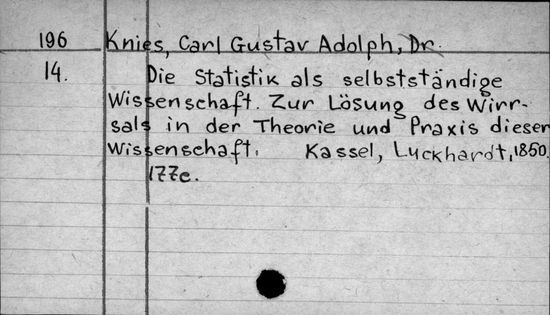 196 Knies, Carl Gustav Adolph, Dr.
14. Die Statistik als selbstständige
Wissenschaft. Zur Lösung des Wirr-
sals in der Theorie und Praxis dieser
Wissenschaft. Kassel, Luckhardt, 1850.
177c.